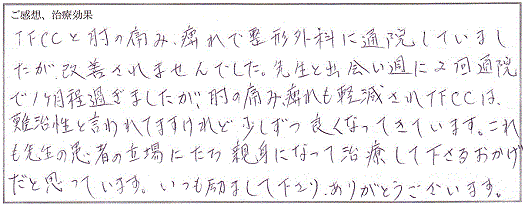 ご感想、治療効果
TFCCと肘の痛み、痺れで整形外科に通院していまし
たが、改善されませんでした。先生と出会い週に2回通院
で1ヶ月程過ぎましたが、肘の痛み、痺れも軽減されTFCCは、
難治性と言われてますけれど少しずつ良くなってきています。これ
も先生の患者の立場にたち親身になって治療して下さるおかげ
だと思っています。いつも励まして下さり、ありがとうございます。